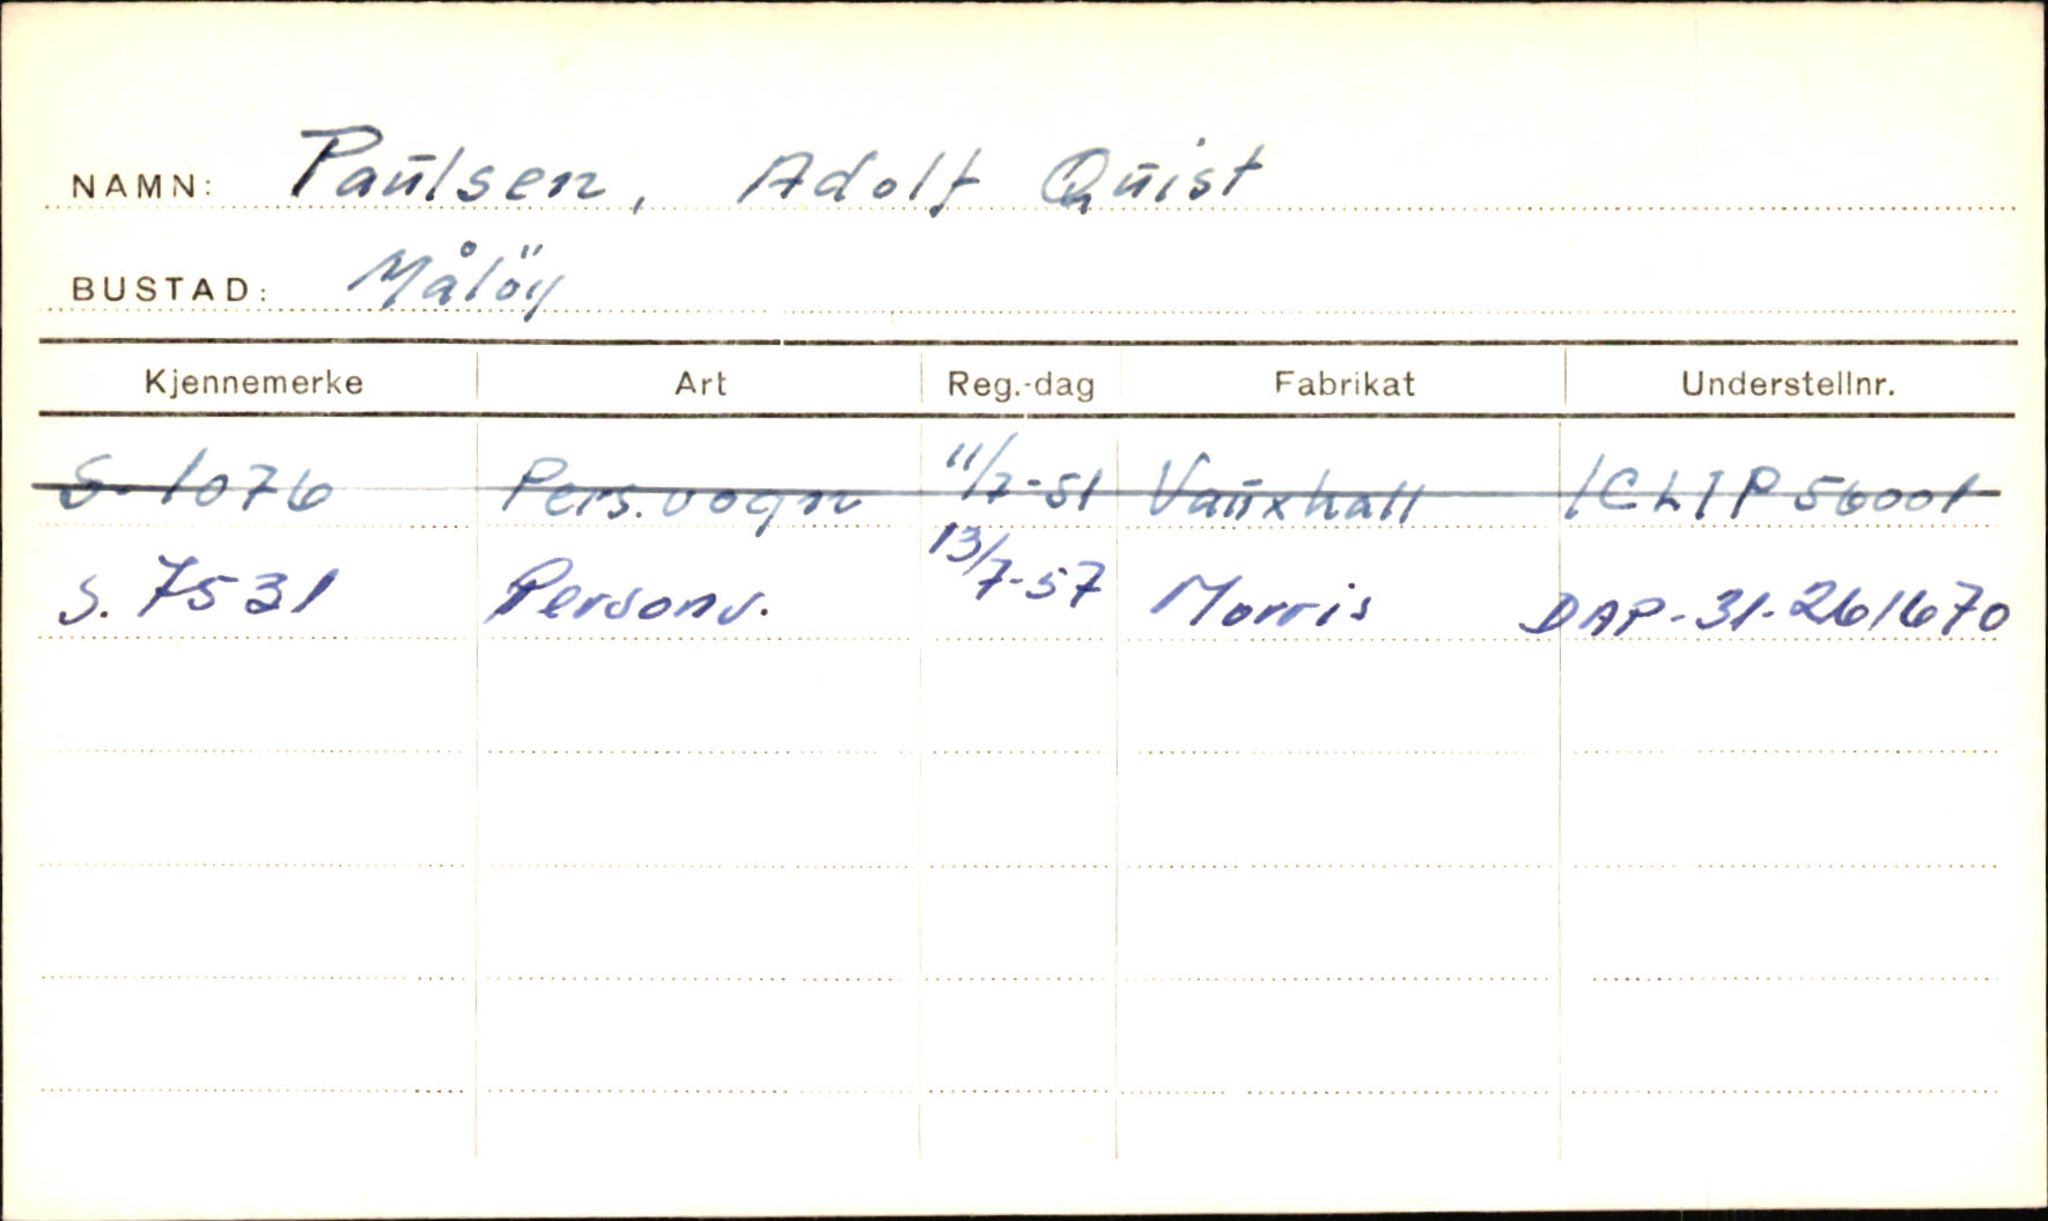 NAMN: Paulsen, Adolf Quist
BUSTAD: Målöy
Kjennemerke Art Reg.-dag Fabrikat Understellnr.
S. 1076 Pers.vogn 11/7-51 Vauxhall ICLIP56001
S. 7531 Personv. 13/7-57 Morris DAP-31-261670